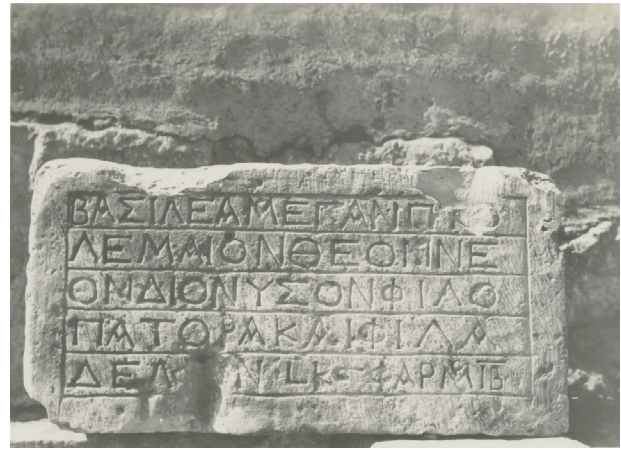 ΒΑΣΙΛΕΑΜΕΓΑΝΠΤΟ
ΛΕΜΑΙΟΝΘΕΟΜΝΕ
ΟΝΔΙΟΝΥΣΟΝΦΙΛΟ
ΠΑΤΟΡΑΚΑΙΦΙΛΑ
ΔΕΛ Ν LΚϚ ΦΑΡΜΙΒ